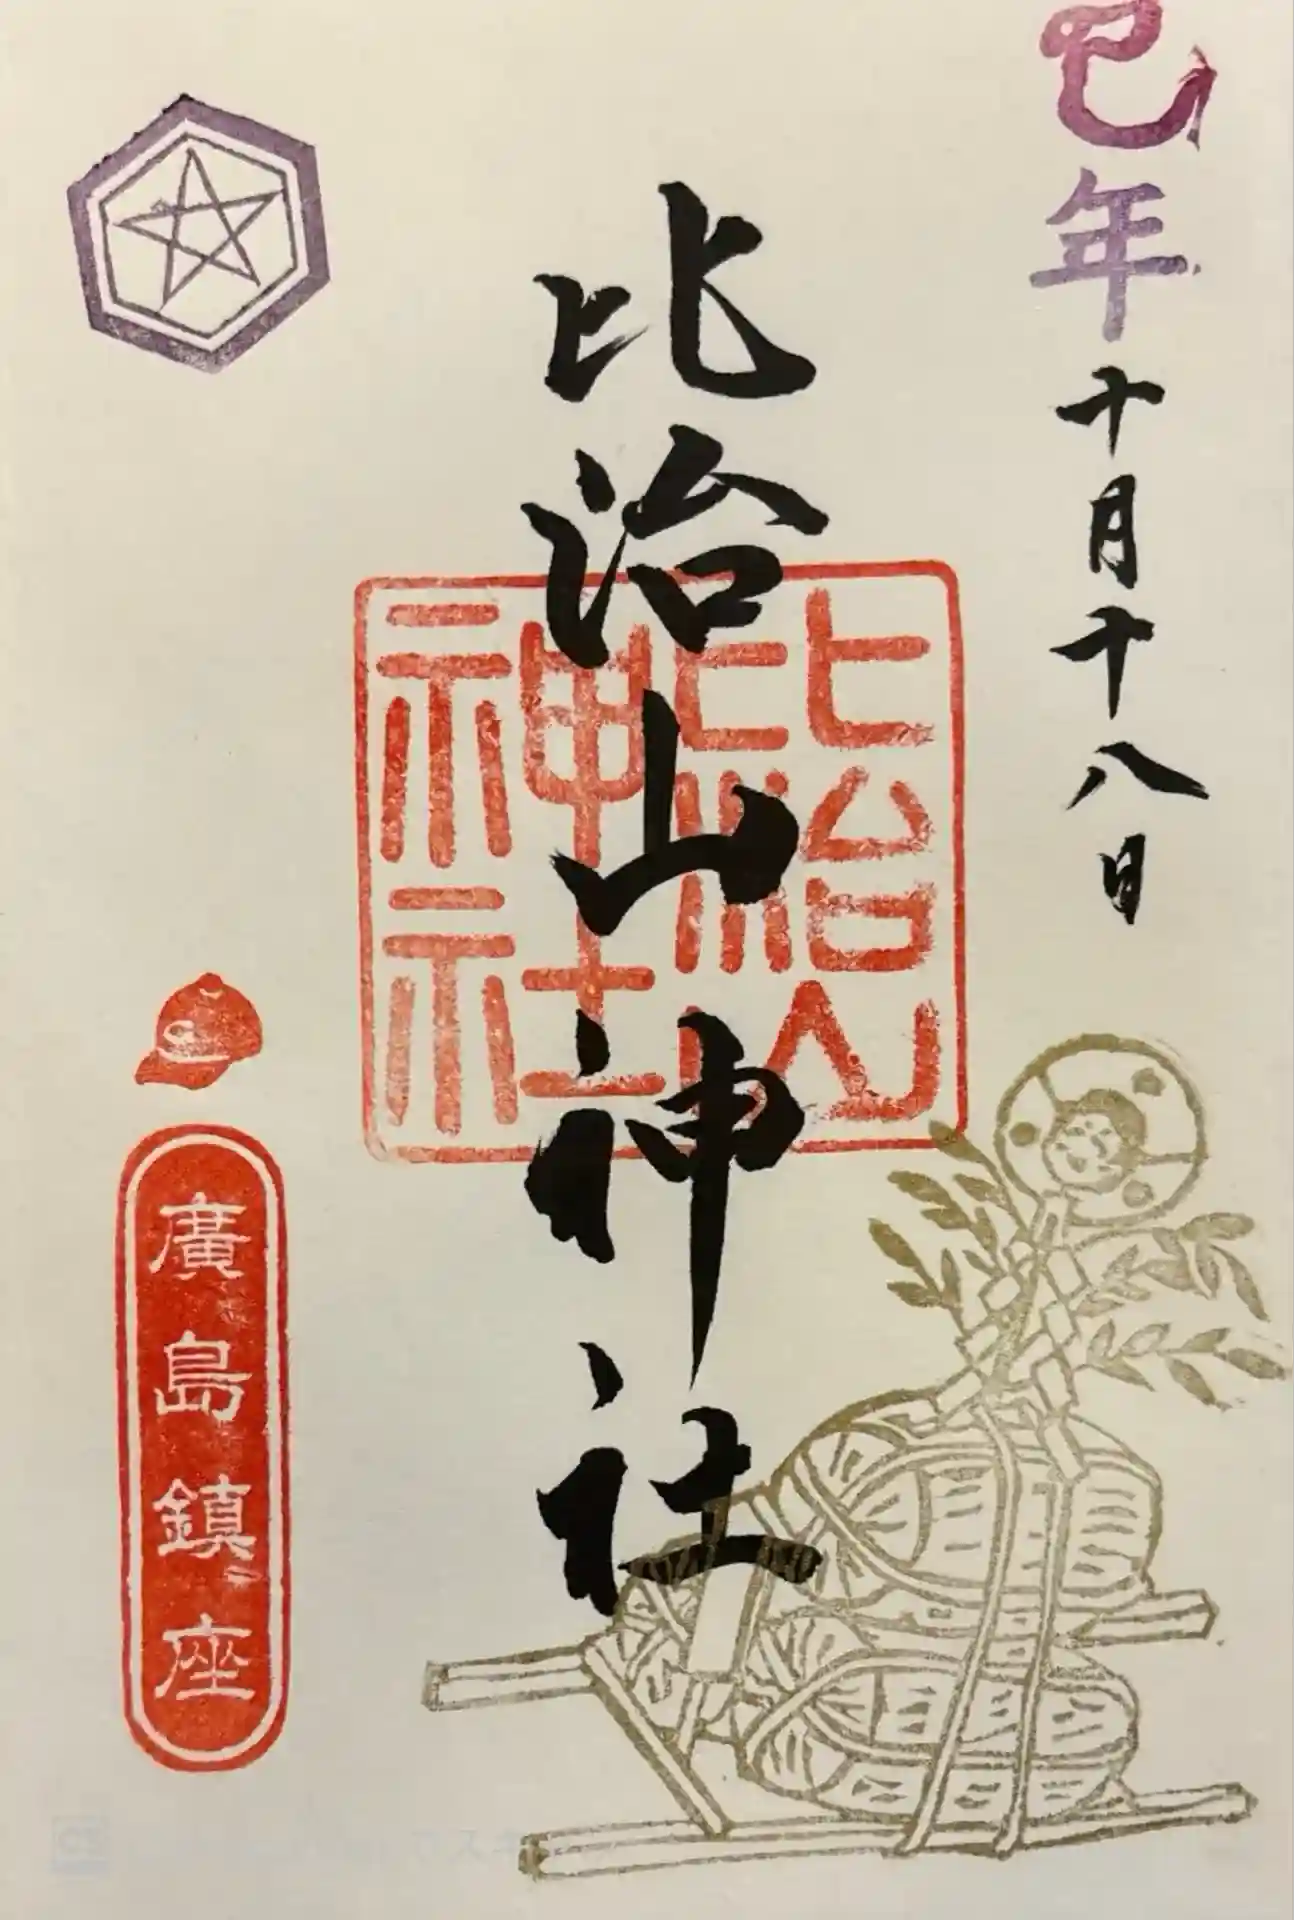 巳年十月十八日
比治山神社
比治山
神社
廣島鎮座